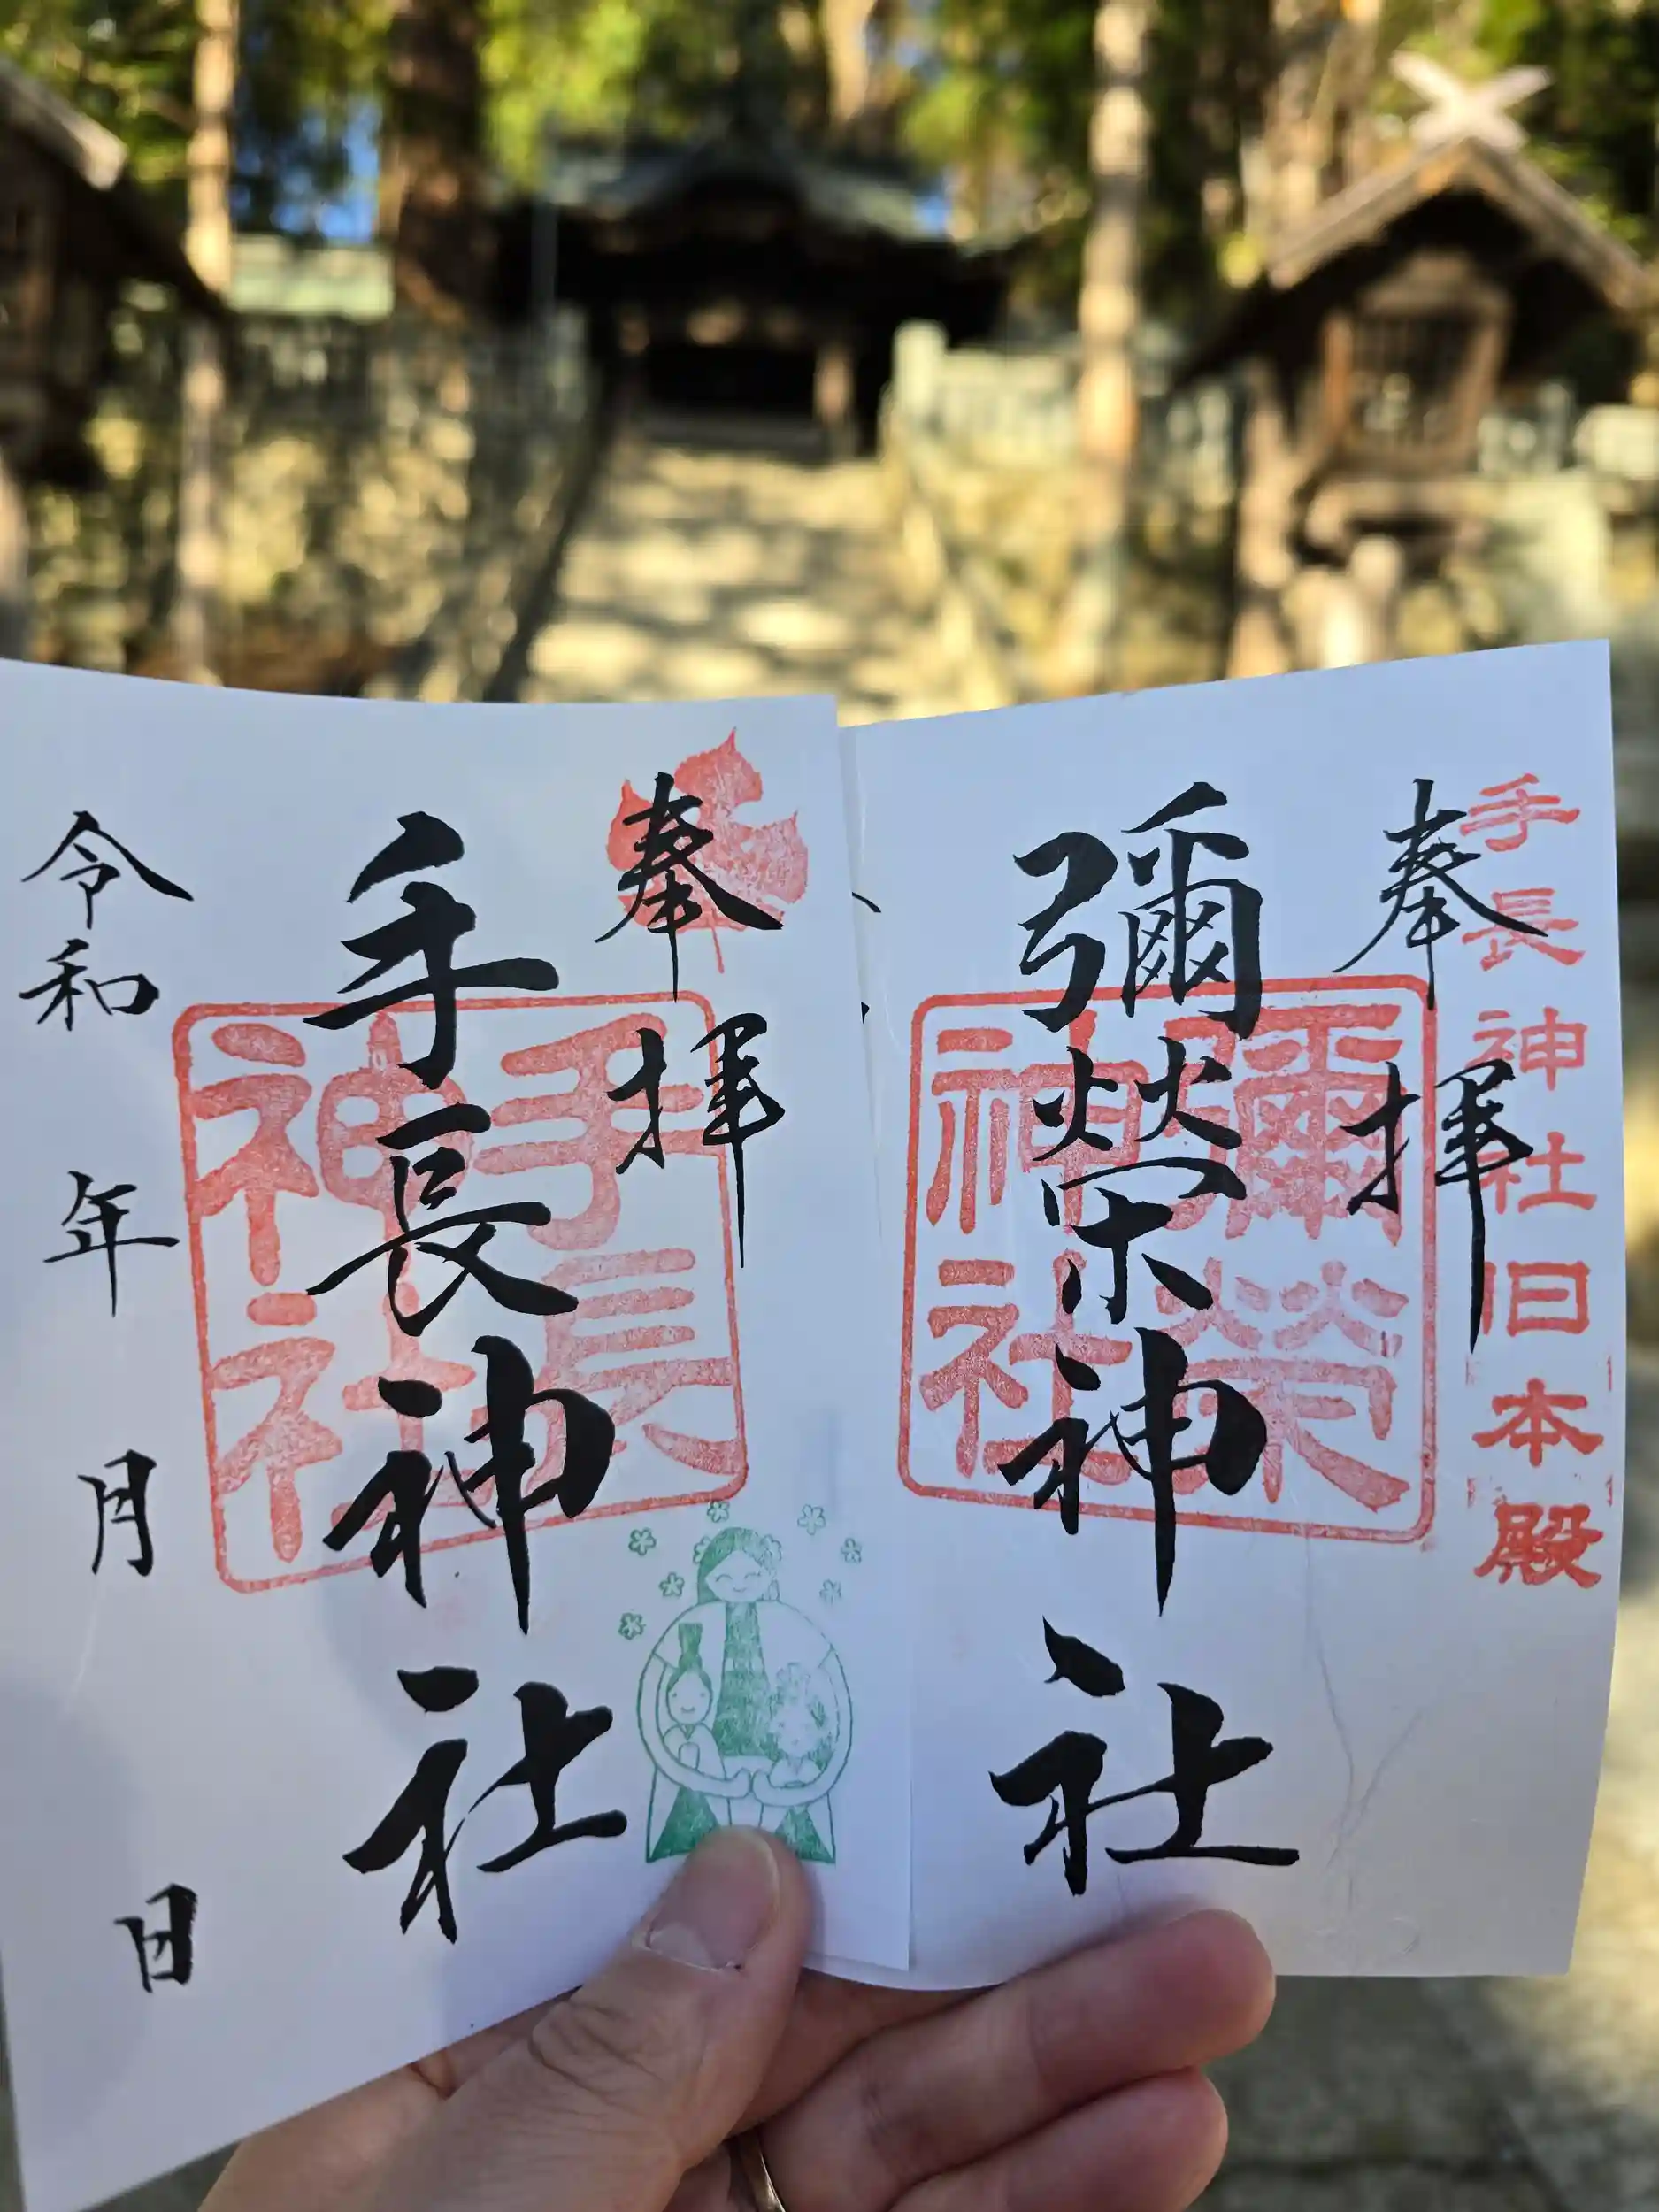 手長神社旧本殿
奉拝
彌榮神社
彌榮
神社
奉拝
手長神社
手長
神社
令和 年 月 日